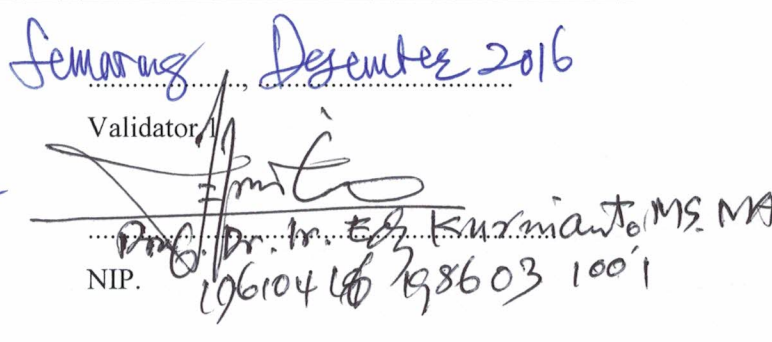 Semarang, Desember 2016
Validator 1
Prof. Dr. Ir. Edy Kurnianto, MS. MA
NIP. 196104 198603 1001